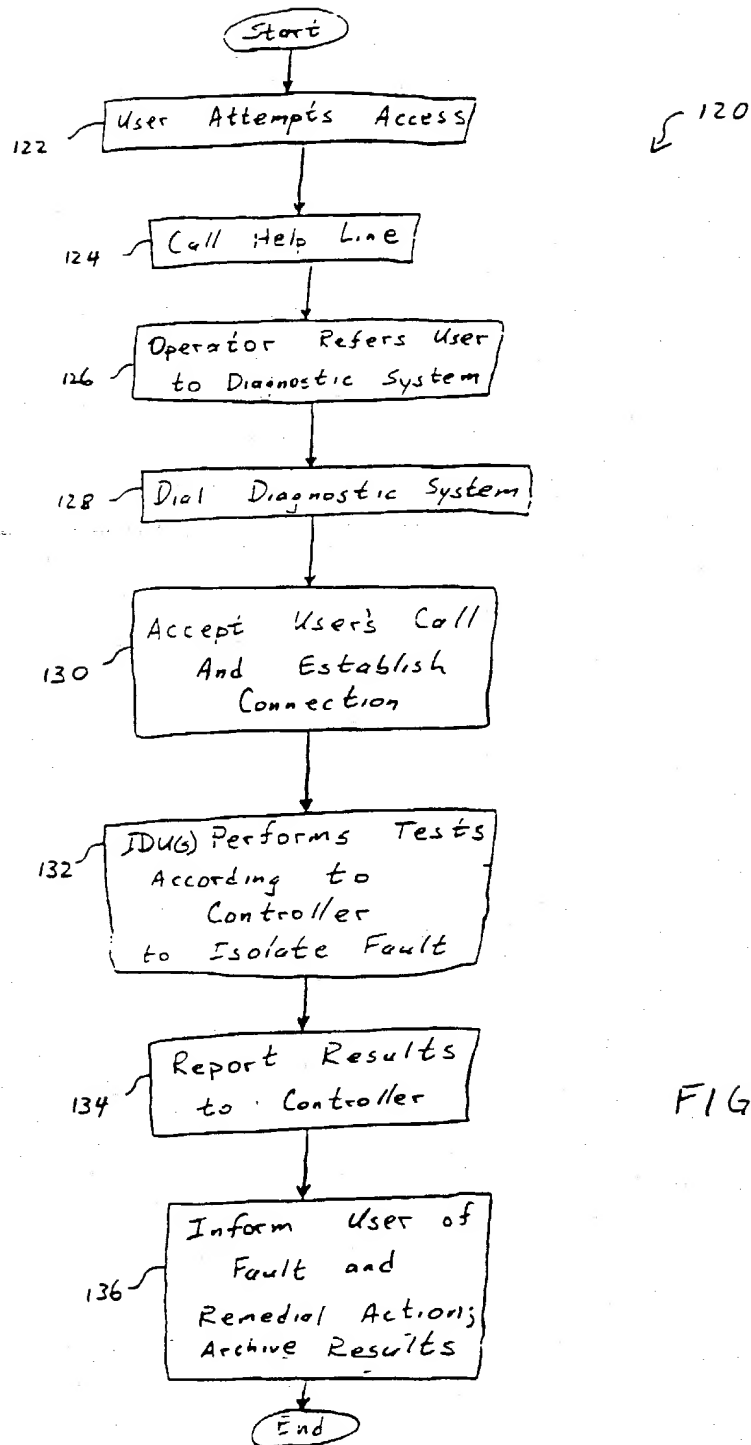 Start
120
User Attempts Access
122
Call Help Line
124
Operator Refers User
to Diagnostic System
126
Dial Diagnostic System
128
Accept User's Call
And Establish
Connection
130
IDU(s) Performs Tests
According to
Controller
to Isolate Fault
132
Report Results
to Controller
134
FIG
Inform User of
Fault and
Remedial Action;
Archive Results
136
End